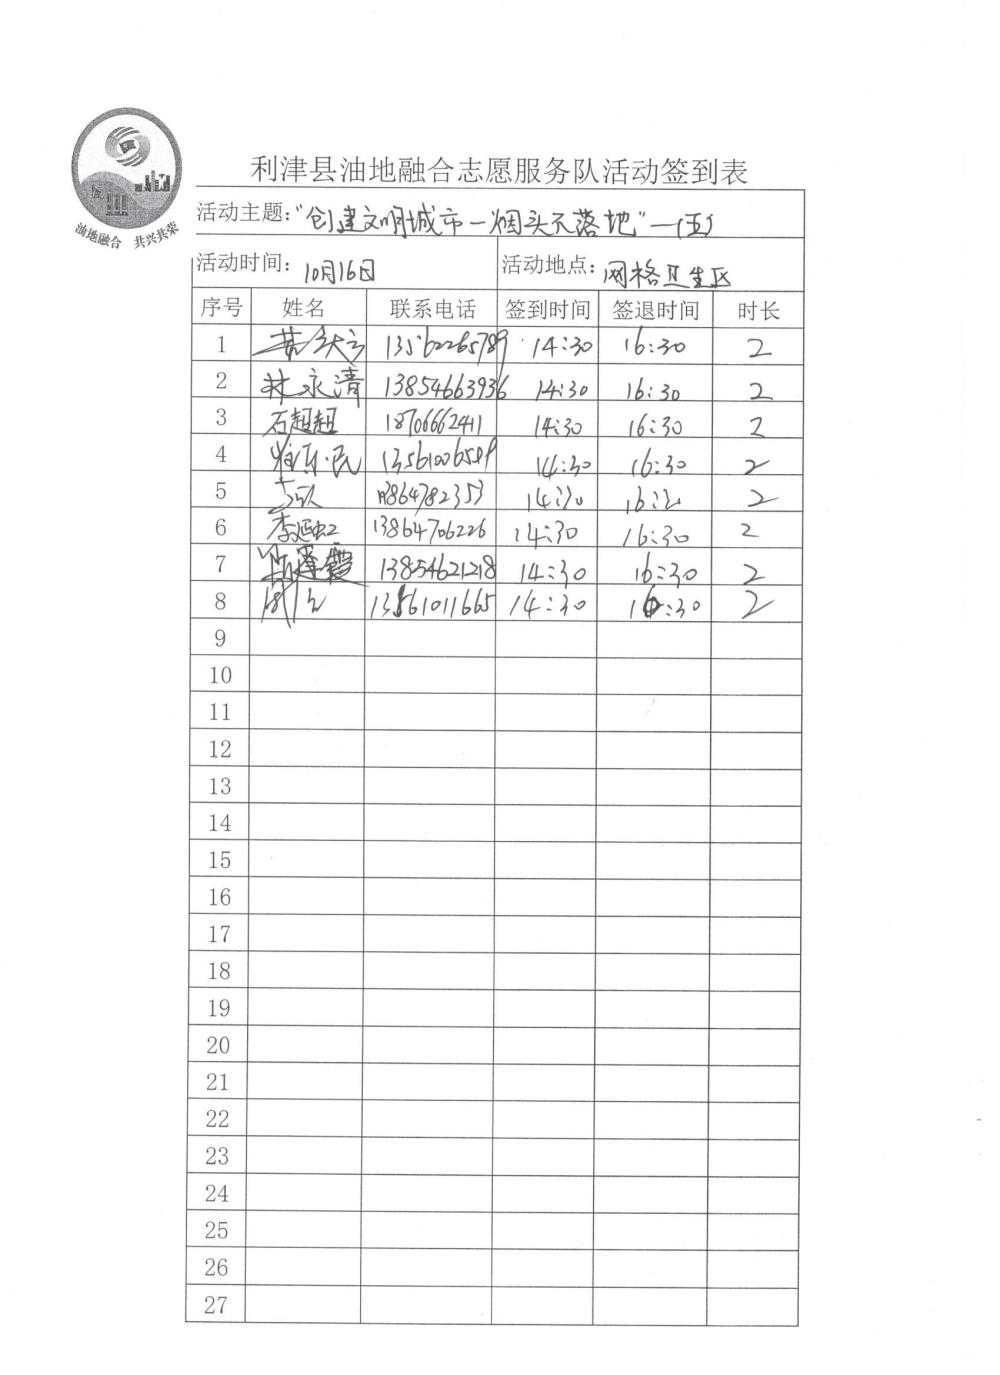 利津县油地融合志愿服务队活动签到表
油地融合 共兴共荣
活动主题："创建文明城市—烟头不落地"—(五)
活动时间：10月16日 活动地点：网格卫生区
序号 姓名 联系电话 签到时间 签退时间 时长
1 13562265789 14:30 16:30 2
2 林永清 13854663936 14:30 16:30 2
3 石超超 18706662411 14:30 16:30 2
4 14:30 16:30 2
5 13864782353 14:30 16:30 2
6 李延虹 13864706226 14:30 16:30 2
7 13854621218 14:30 16:30 2
8 13561011665 14:30 16:30 2
9
10
11
12
13
14
15
16
17
18
19
20
21
22
23
24
25
26
27